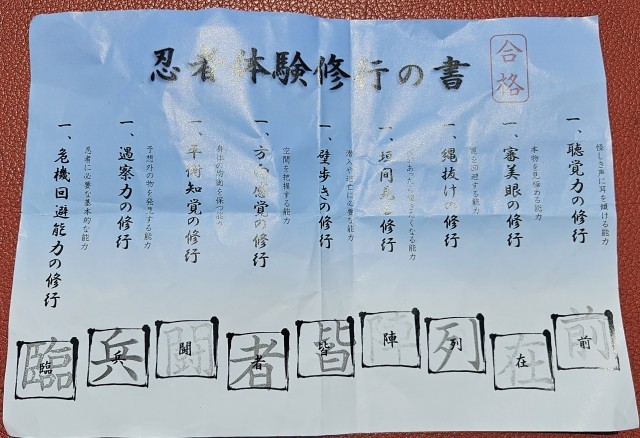 忍者体験修行の書
合格
怪しき声に耳を傾ける能力
一、聴覚力の修行
本物を見極める能力
一、審美眼の修行
を回避する能力
一、縄抜けの修行
能力
一、垣間見る修行
潜入や逃亡に必要な能力
一、壁歩きの修行
空間を把握する能力
一、方向感覚の修行
身体の均衡を保つ能力
一、平衡知覚の修行
予想外の物を発見する能力
一、遇察力の修行
忍者に必要な基本的な能力
一、危機回避能力の修行
前
在
列
陣
皆
者
闘
兵
臨